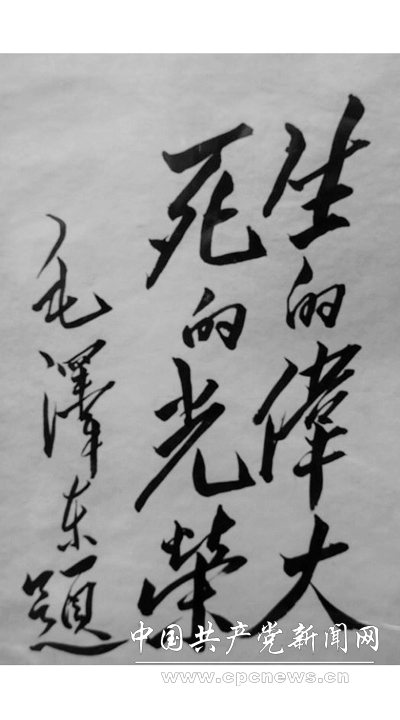 生的偉大
死的光榮
毛澤东題
中国共产党新闻网
www.cpcnews.cn